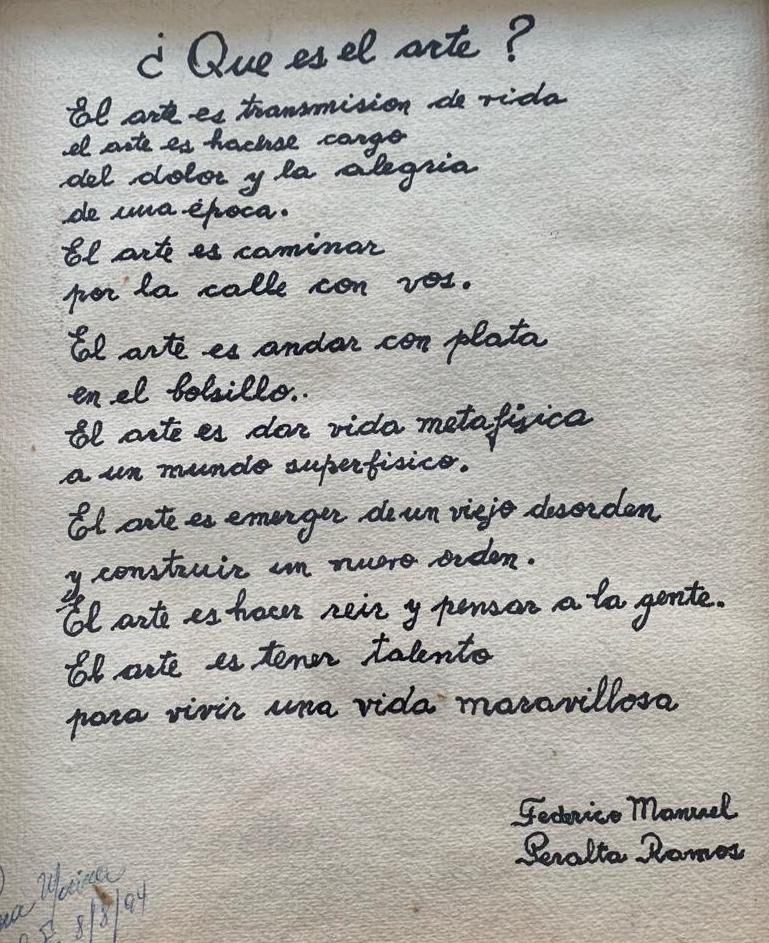 ¿Que es el arte?
El arte es transmision de vida
el arte es hacerse cargo
del dolor y la alegria
de una época.
El arte es caminar
por la calle con vos.
El arte es andar con plata
en el bolsillo..
El arte es dar vida metafisica
a un mundo superfisico.
El arte es emerger de un viejo desorden
y construir un nuevo orden.
El arte es hacer reir y pensar a la gente.
El arte es tener talento
para vivir una vida maravillosa
Federico Manuel
Peralta Ramos
8/8/94